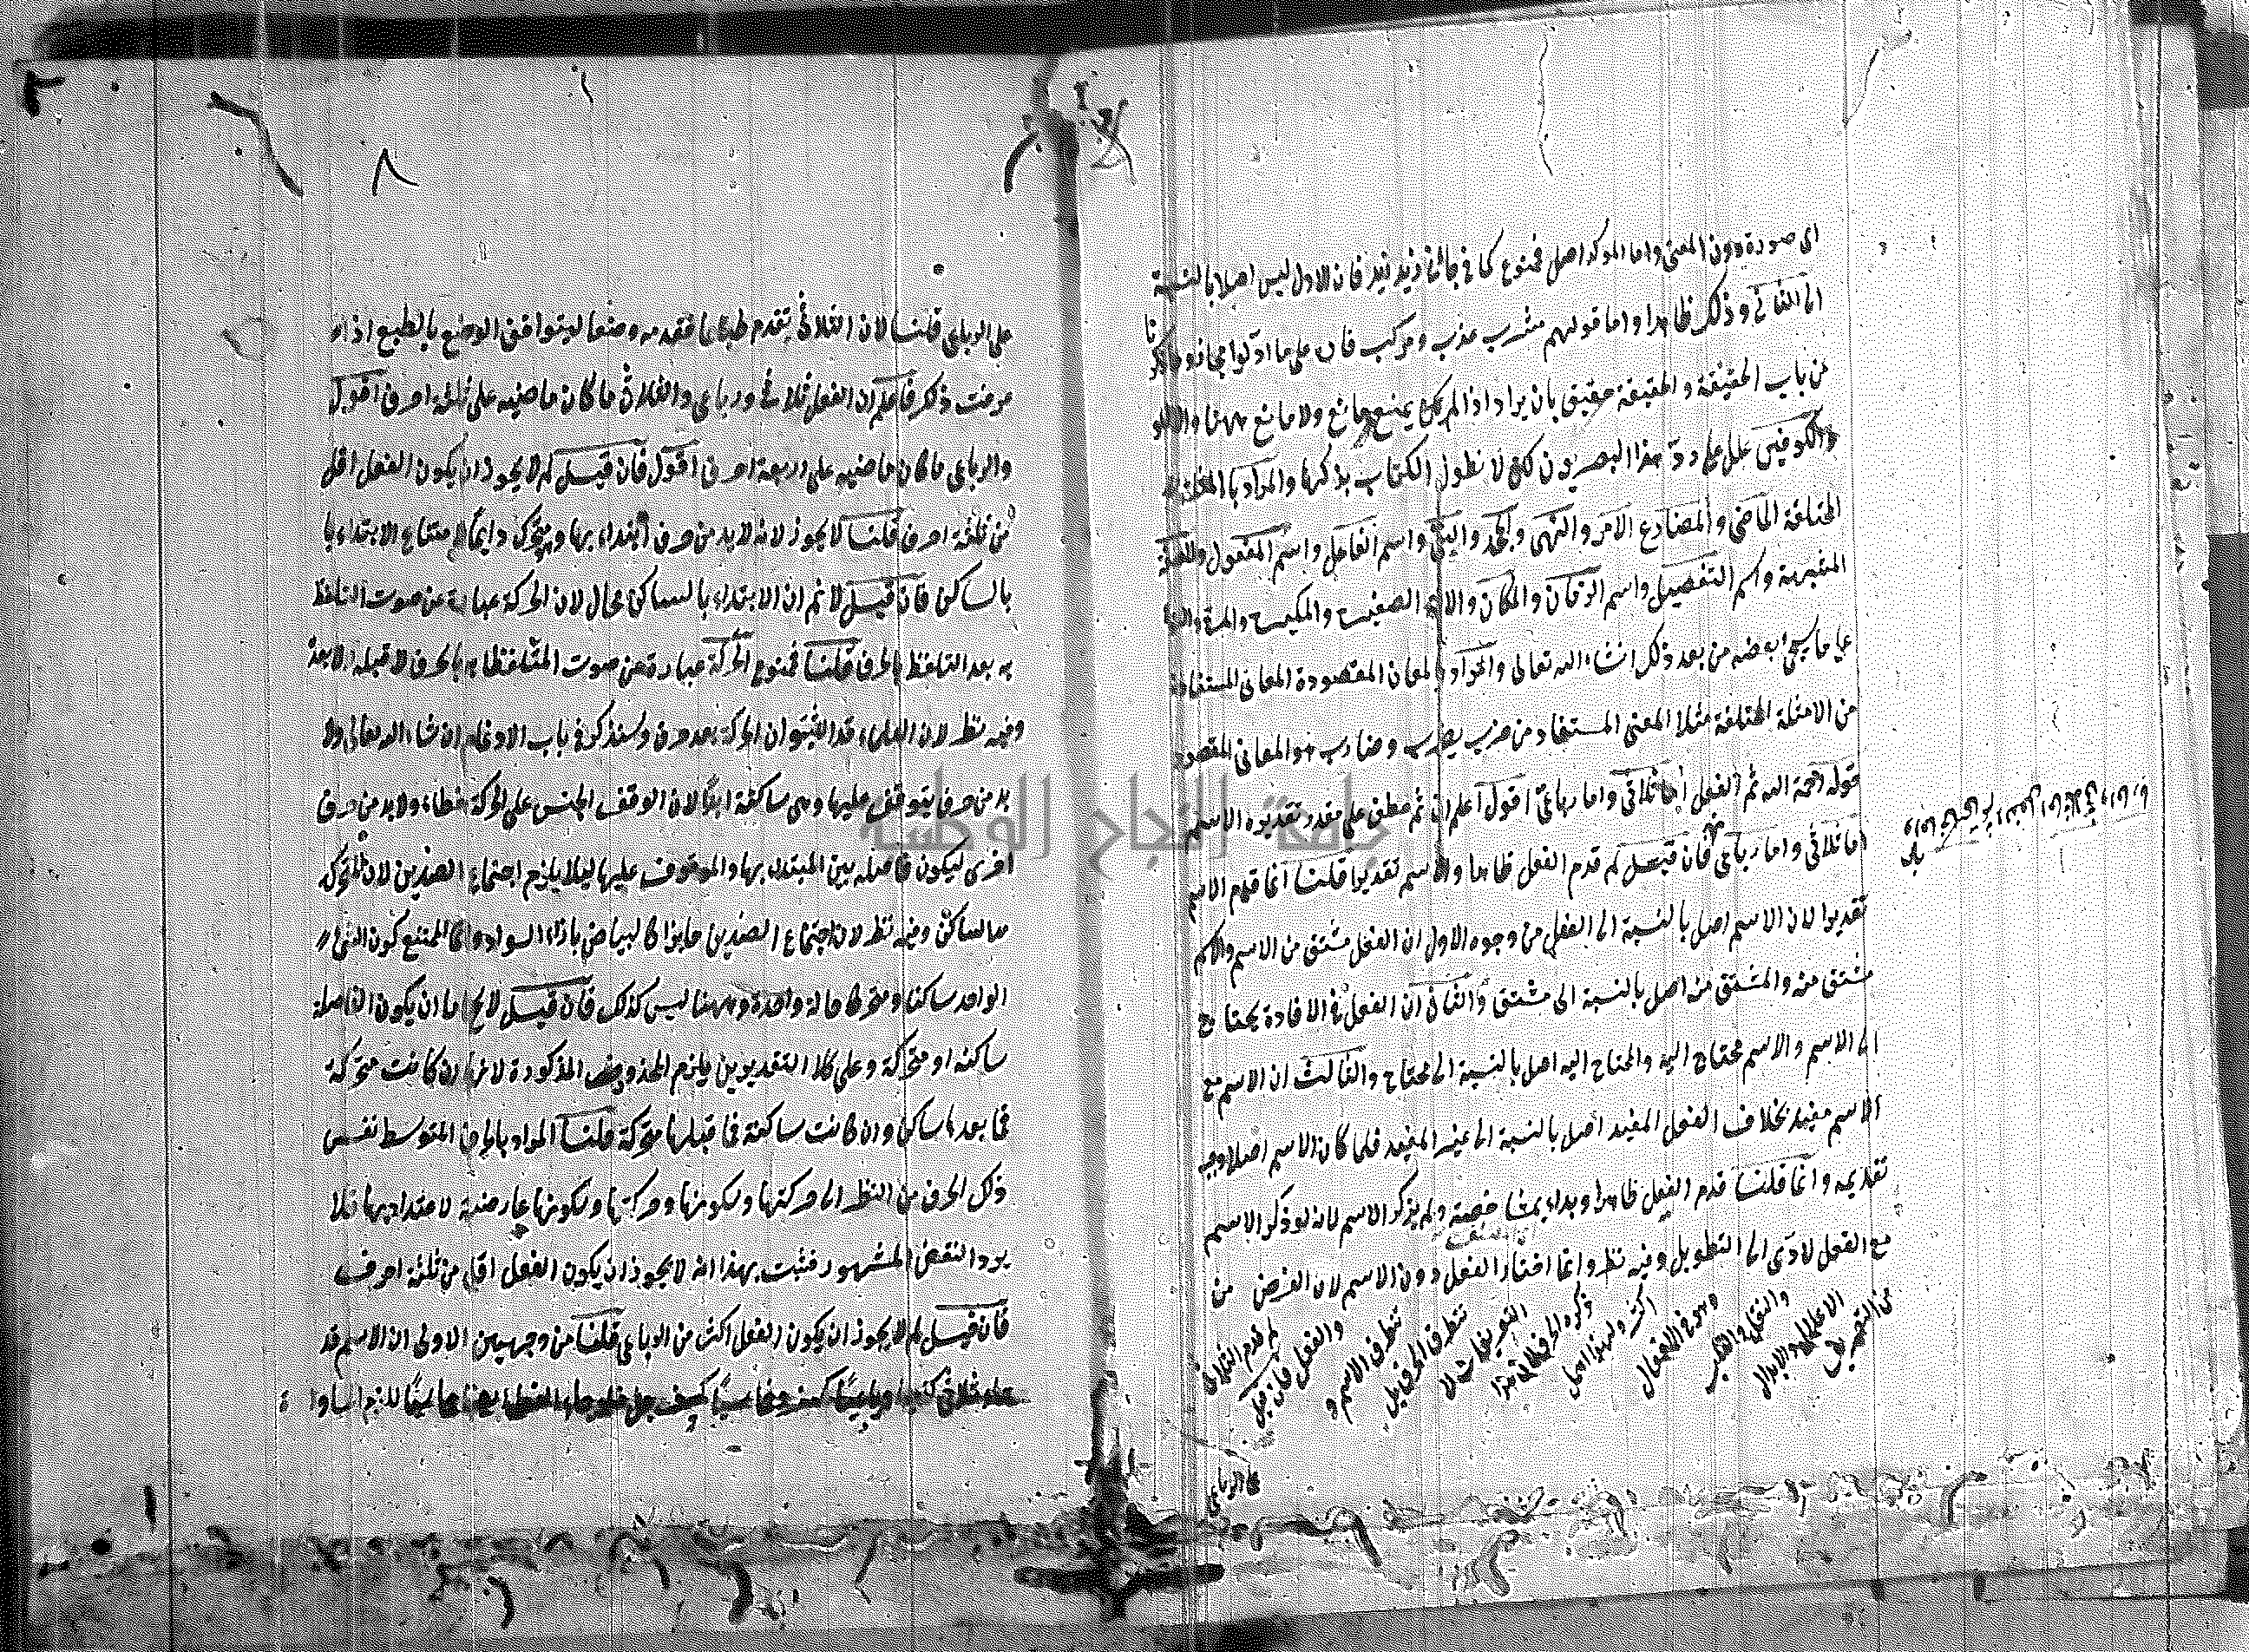 اى صورة دون المعنى واما الموكد اصل فممنوع كما فى جائنى زيد زيد فان الاول ليس اصلا بالنسبة
الى الثانى وذلك ظاهرا واما قولهم مشرب عذب ومركب فان على ما ادّلوا مجاز وما ذكرنا
من باب الحقيقة والحقيقة حقيق بان يراد اذا لم يكن يمنع مانع ولا مانع ههنا
والكوفيين علل على ردّ هذا البصريون لكن لا نطول الكتاب بذكرها والمراد بالامثلة
المختلفة الماضى والمضارع الامر والنهى والجحد والنفى واسم الفاعل واسم المفعول والصفة
المشبهة واسم التفضيل واسم الزمان والمكان والآلة والمرة
على ما يجئ بعضه من بعد ذلك انشاء الله تعالى والمراد بالمعان المقصودة المعانى المستفادة
من الامثلة المختلفة مثلا المعنى المستفاد من ضرب يضرب وضارب هو المعانى المقصود
قوله رحمة الله ثم الفعل اما ثلاثى واما رباعى اقول اعلم ان ثم عطف على مقدر تقديره الاسم
اما ثلاثى واما رباعى فان قيل لم قدم الفعل ظاهرا والاسم تقديرا قلنا انما قدم الاسم
تقديرا لان الاسم اصل بالنسبة الى الفعل من وجوه الاول ان الفعل مشتق من الاسم والاسم
مشتق منه والمشتق منه اصل بالنسبة الى مشتق والثانى ان الفعل فى الافادة يحتاج
الى الاسم والاسم محتاج اليه والمحتاج اليه اصل بالنسبة الى محتاج والثالث ان الاسم مع
الاسم مفيد بخلاف الفعل المفيد اصل بالنسبة الى غير المفيد فلما كان الاسم اصلا وجب
تقديمه وانما قلنا قدم الفعل ظاهرا وبداء ولم يذكر الاسم لانه لو ذكر الاسم
مع الفعل لادّى الى التطويل وفيه نظر وانما اختار الفعل دون الاسم لان الغرض من
من التصريف
الاعلال والابدال
والنقل
وهو فى الافعال
اكثر ولهذا اصل
ذكره
التعريفات لا
تتطرق
تتطرق الاسم و
والفعل فان قيل
لم قدم الثلاثى
على الرباعى
على الرباعى قلنا لان الثلاثى يتقدم طبعا فقدمه وضعا ليتوافق الوضع بالطبع اذا
عرفت ذكر فاعلم ان الفعل ثلاثى ورباعى والثلاثى ما كان ماضيه على ثلثة احرف اقول
والرباعى ما كان ماضيه على اربعة احرف اقول فان قيل لم لا يجوز ان يكون الفعل اقل
من ثلثة احرف قلنا لا يجوز لانه لابد من حرف ابتداء بها وهو متحرك دايما لامتناع الابتداء با
بالساكن فان قيل لا نم ان الابتداء بالساكن محال لان الحركة عبارة عن صوت التلفظ
به بعد التلفظ بالحرف قلنا فممنوع الحركة عبارة عن صوت المتلفظ به بالحرف لا قبله ولا بعده
وفيه نظر لان العلماء قد اثبتوا ان الحركة بعد حرف وسنذكر فى باب الادغام ان شاء الله تعالى ولا
بد من حرف يتوقف عليها وهى ساكنة ابدا لان الوقف الجنس على الحركة خطاء ولابد من حرف
اخرى ليكون فاصله بين المبتداء بها والموقوف عليها ليلا يلزم اجتماع الضدين لان المتحرك
ضد الساكن وفيه نظر لان اجتماع الضدين جايز كالبياض بازاء السواد وانما الممتنع كون الشئ
الواحد ساكنا ومتحركا حالة واحدة وههنا ليس كذلك فان قيل لا يخ اما ان يكون الفاصلة
ساكنه او متحركة وعلى كلا التقديرين يلزم المحذور المذكورة لانها ان كانت متحركة
فما بعدها ساكن وان كانت ساكنة فما قبلها متحركة قلنا المراد بالحرف المتوسط نفس
ذلك الحرف من النظر الى حركتها وسكونها وحركتها وسكونها عارضية لاعتداد بها فلا
يرد النقض المشهور فثبت بهذا انه لا يجوز ان يكون الفعل اقل من ثلثة احرف
فان قيل لم لا يجوز ان يكون الفعل اكثر من الرباعى قلنا من وجهين الاولى ان الاسم قد